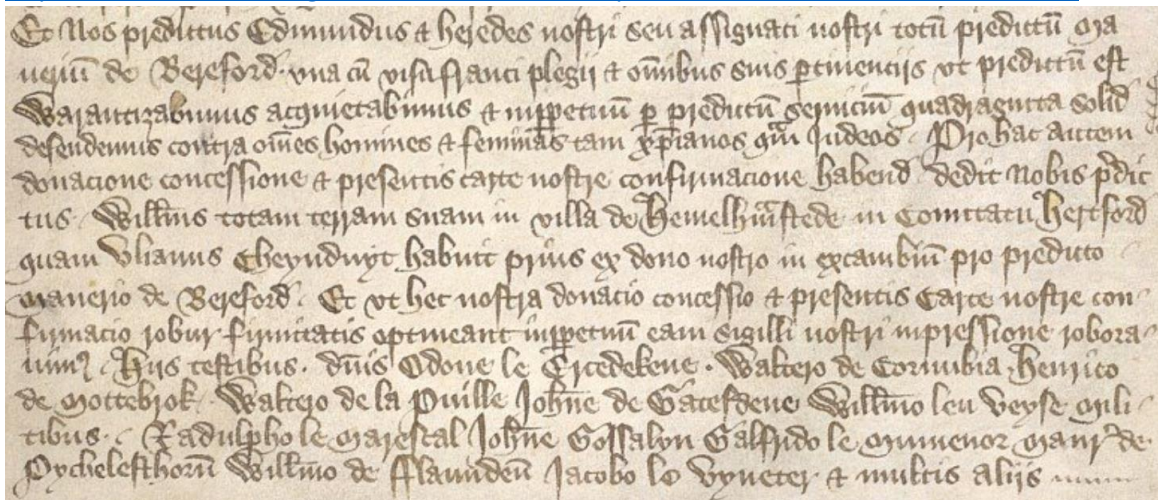 Et Nos predictus Edmundus & heredes nostri seu assignati nostri totū predictū Ma
neriū de Bereford vna cū visu franci plegij & om̄ibus suis ꝑtinentijs vt predictū est
Warantizabimus acquietabimus & inꝑpetuū ꝑ predictū seruiciū quadraginta solid
defendemus contra om̄es homines & feminas tam xp̄ianos qᵃm Judeos . Pro hac autem
donacione concessione & presentis carte nostre confirmacione habend dedit Nobis p̄dic
tus Willm̄s totam terram suam in villa de Hemelhm̄stede in Comitatu Hertford
quam Vlianus Cheynduyt habuit prius ex dono nostro in excambiū pro predicto
Manerio de Bereford . Et vt hec nostra donacio concessio & presentis Carte nostre con
firmacio robur firmitatis optineant inꝑpetuū eam sigilli nostri inpressione robora
uimꝰ . Hijs testibus . dn̄is Odone le Ercedekene . Waltero de Cornubia Henrico
de Mottebrok Waltero de la Puille Joh̄ne de Gatesdene Willm̄o leu Veyse Mili
tibus . Radulpho le Marescal Joh̄ne Gossalyn Galfrido le Mumenor Man̄ de
Pychelesthorn̄ Willm̄o de Fflaunden̄ Jacobo le Vyneter & multis alijs